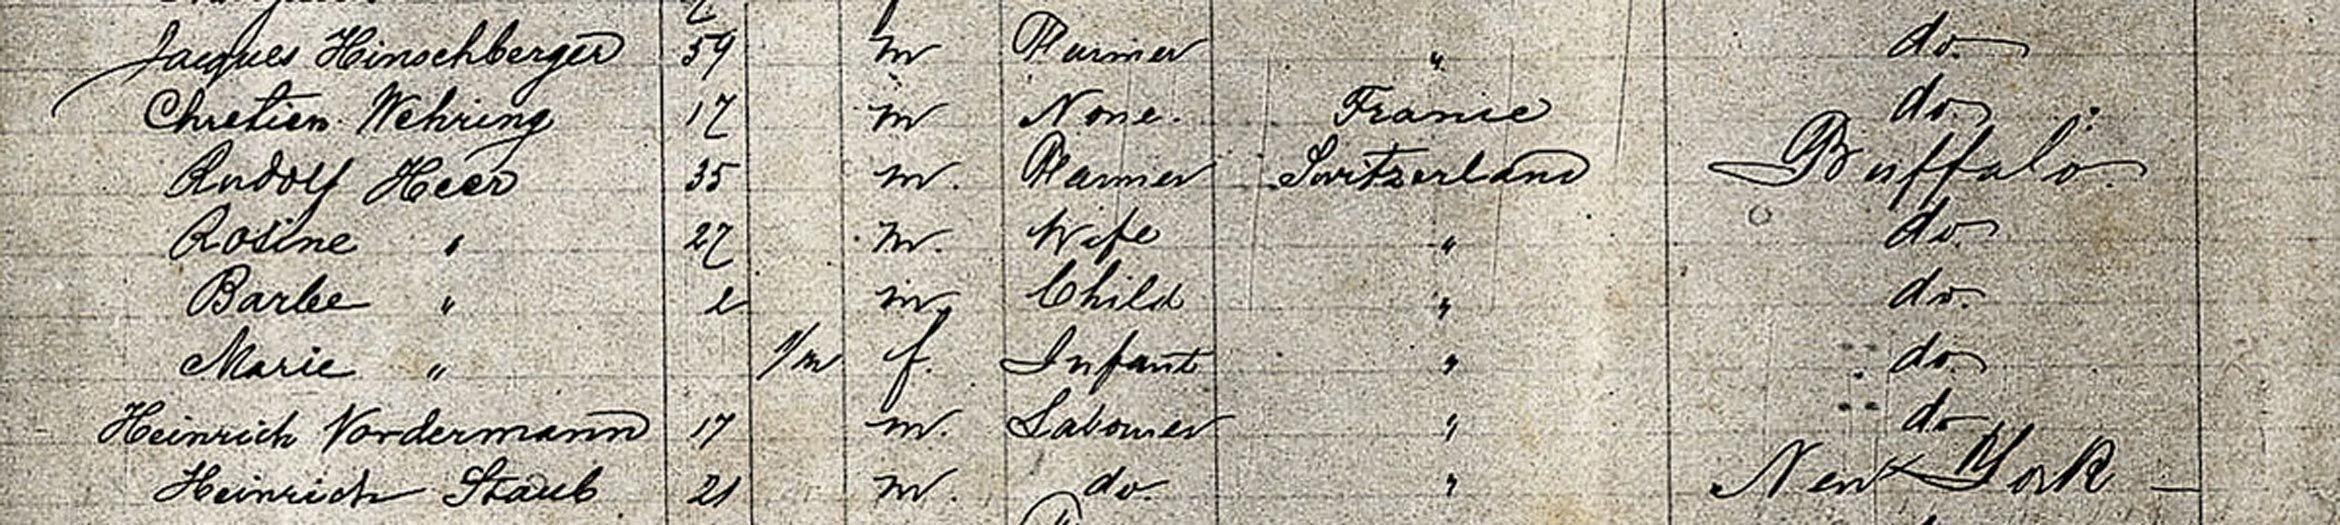 Jacques Hinschberger 59 m Farmer " do.
Chretien Wehring 17 m None. France do.
Rudolf Heer 35 m. Farmer Switzerland Buffalo.
Rosine " 27 m. Wife " do.
Barbe " 2 m Child " do.
Marie " 1/m f. Infant " do.
Heinrich Vordermann 17 m. Labourer " do
Heinrich Staub 21 m. do. " New York —